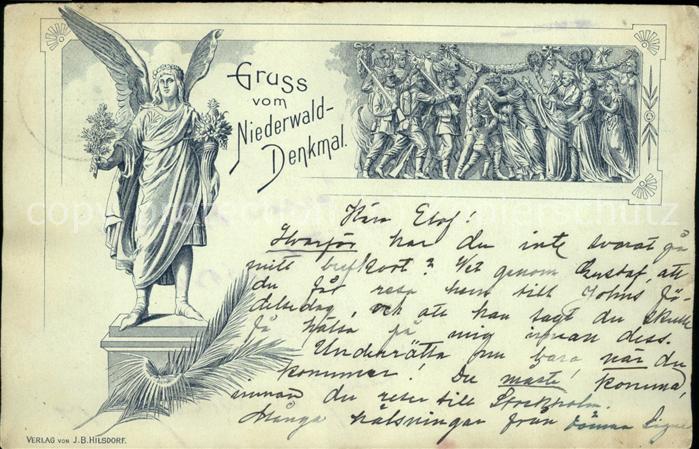 Gruss
vom
Niederwald-
Denkmal.
Kära Elof!
Hvarför har du inte svarat på
mitt brefkort? Vet genom Gustaf, att
du får resa hem till Johns fö-
delsedag, och att han sagt du skulle
få hälsa på mig innan dess.
Underrätta nu bara när du
kommer! Du måste komma,
innan du reser till Stockholm.
Många hälsningar från Signe
VERLAG VON J. B. HILSDORF.